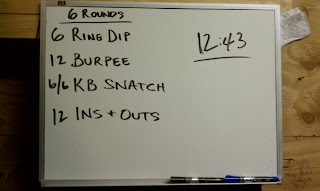 6 ROUNDS
6 RING DIP
12 BURPEE
6/6 KB SNATCH
12 INS + OUTS
12:43